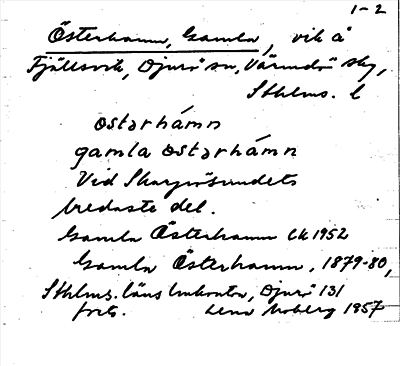 1-2
Österhamn, Gamla, vik å
Fjällsvik, Djurö sn, Värmdö sky,
Sthlms. l
ostərhámn
gamla ostərhámn
Vid Skarprösundets
bredaste del.
Gamla Österhamn Ek 1952
Gamla Österhamn, 1879-80,
Sthlms. läns Djurö 131
forts. Lena Moberg 1957